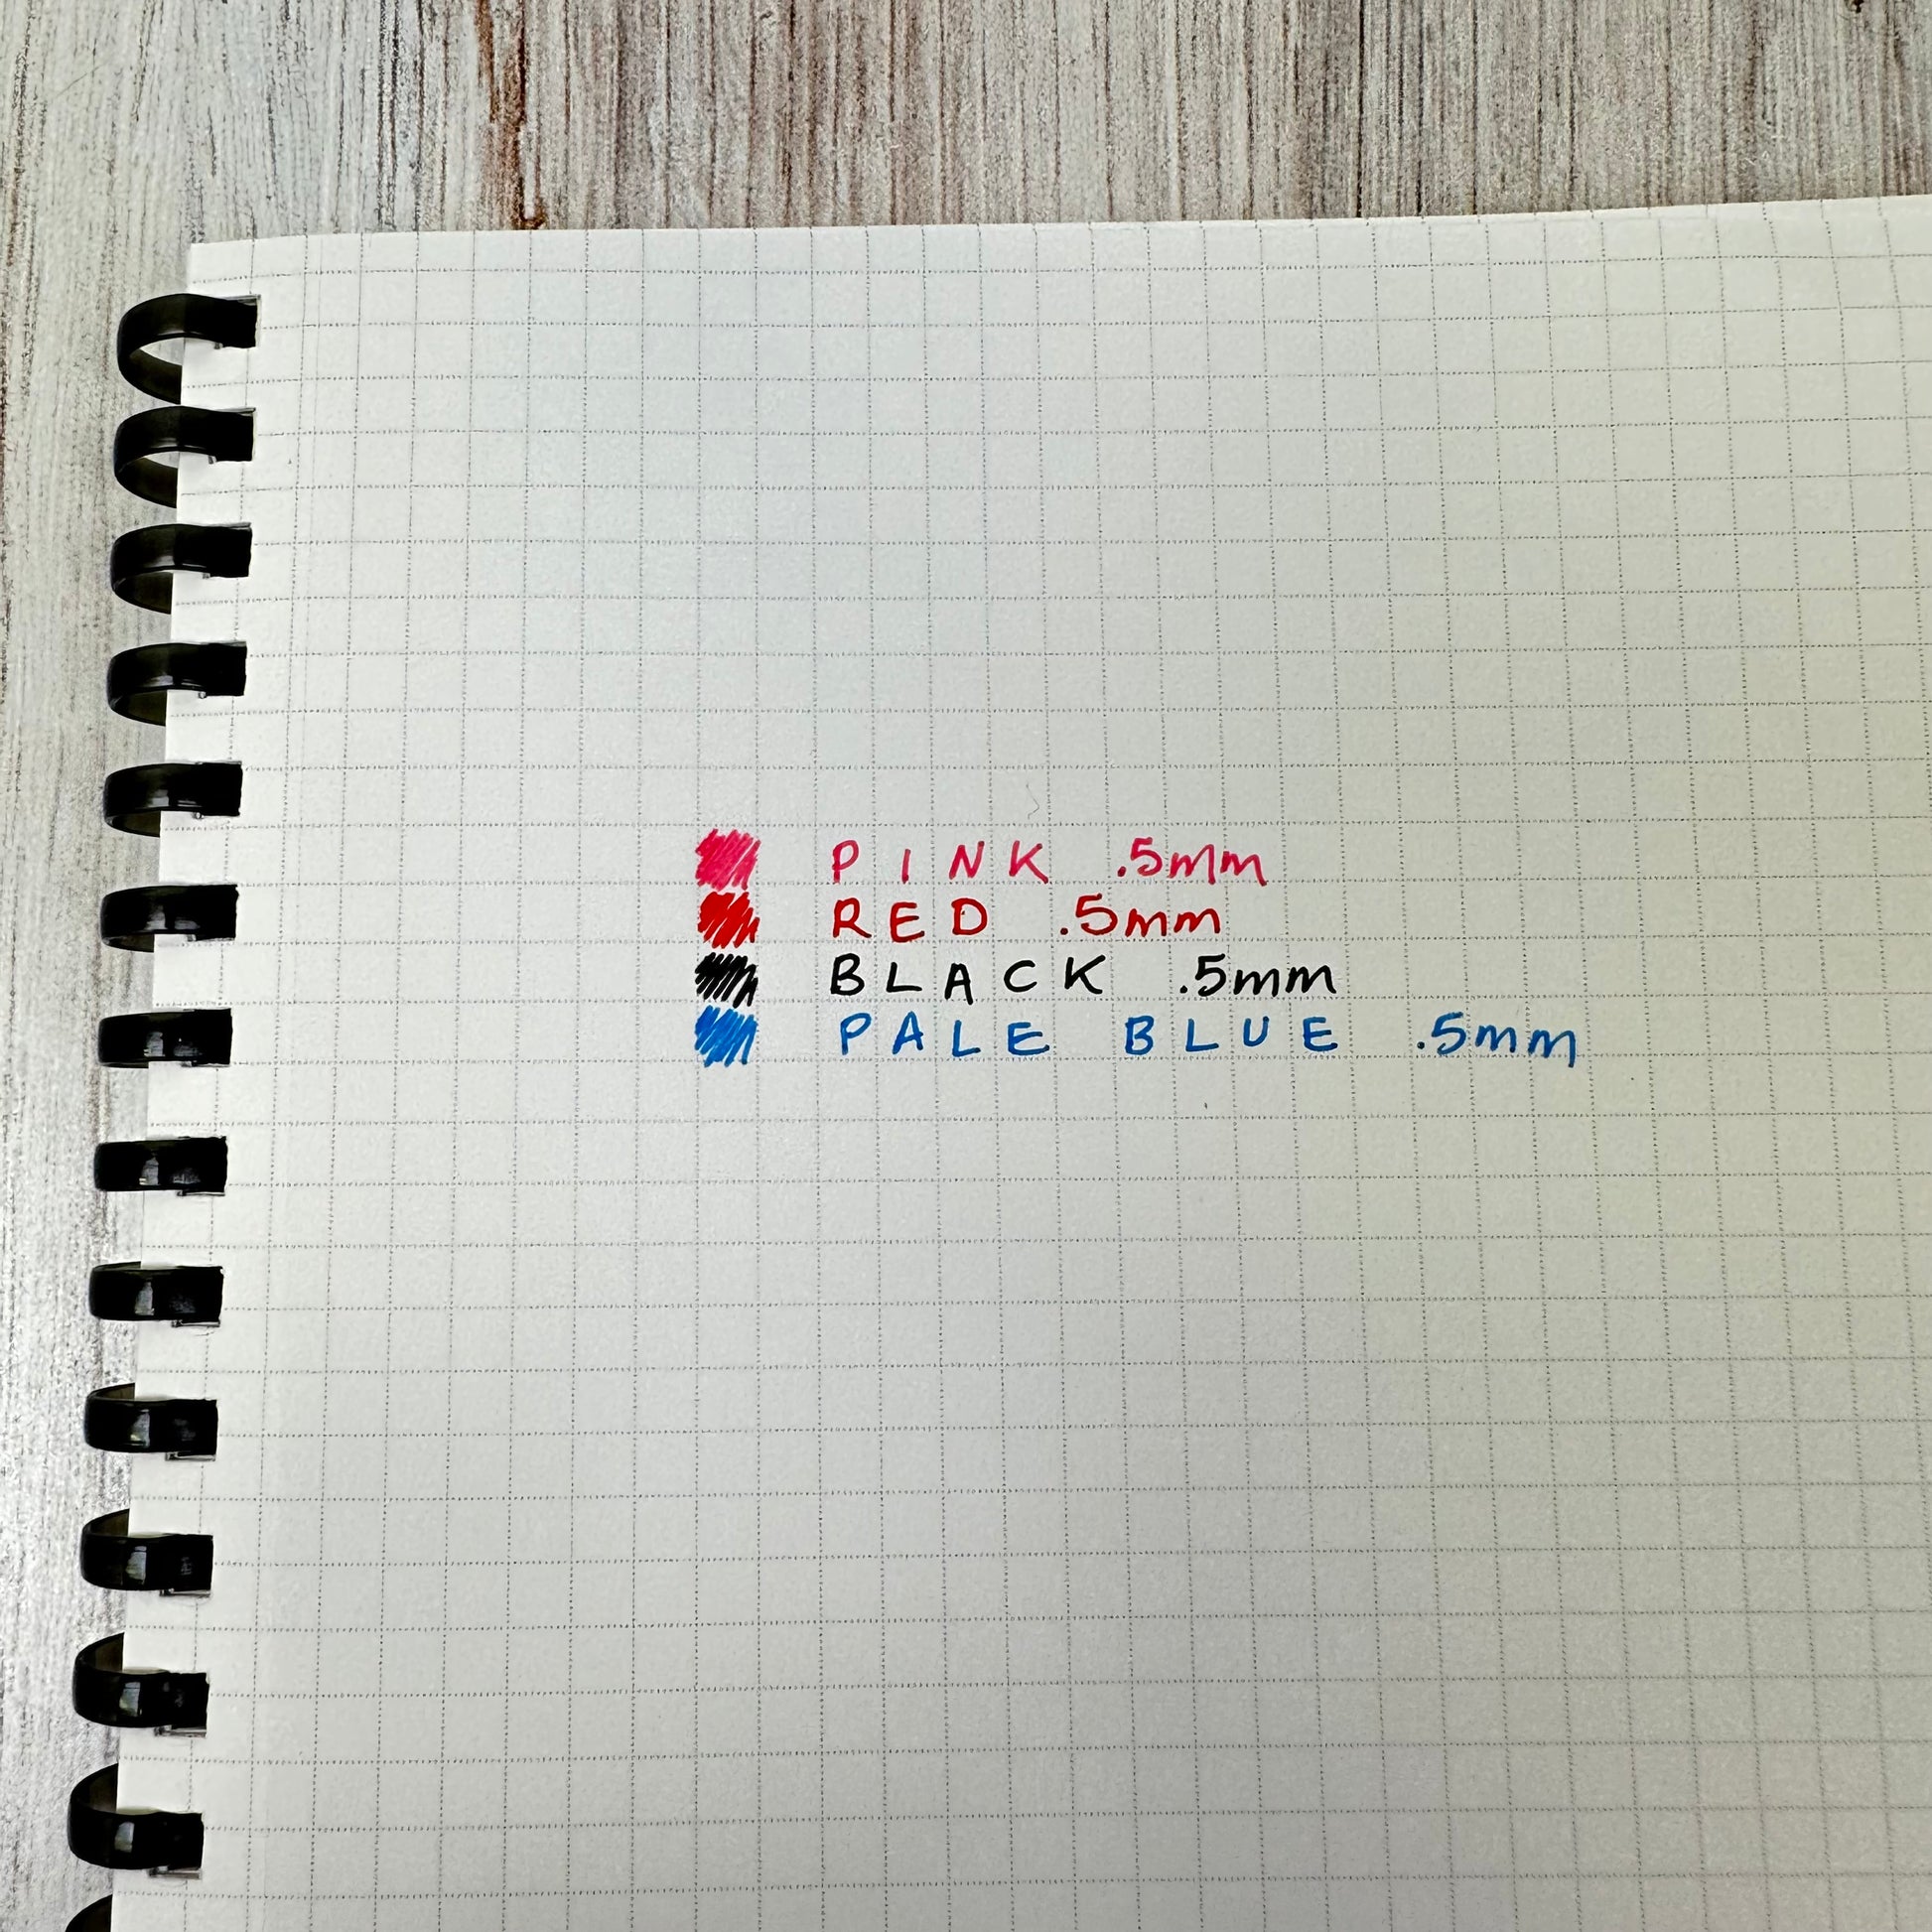 PINK .5mm
RED .5mm
BLACK .5mm
PALE BLUE .5mm